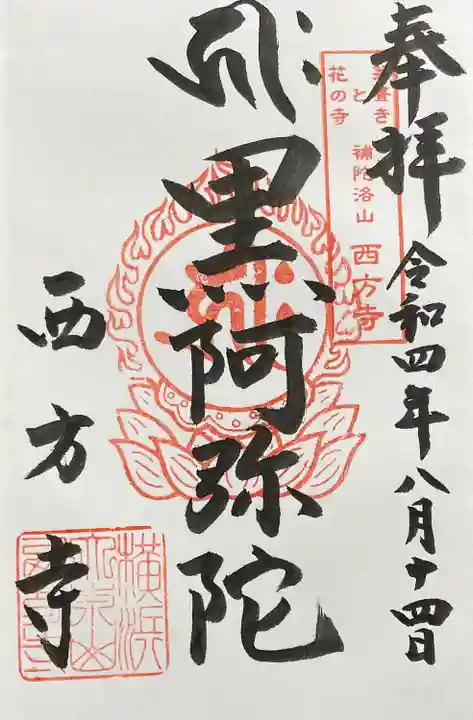 奉拝
令和四年八月十四日
茅葺き
と
花の寺
補陀洛山
西方寺
黒阿弥陀
西方寺
横浜